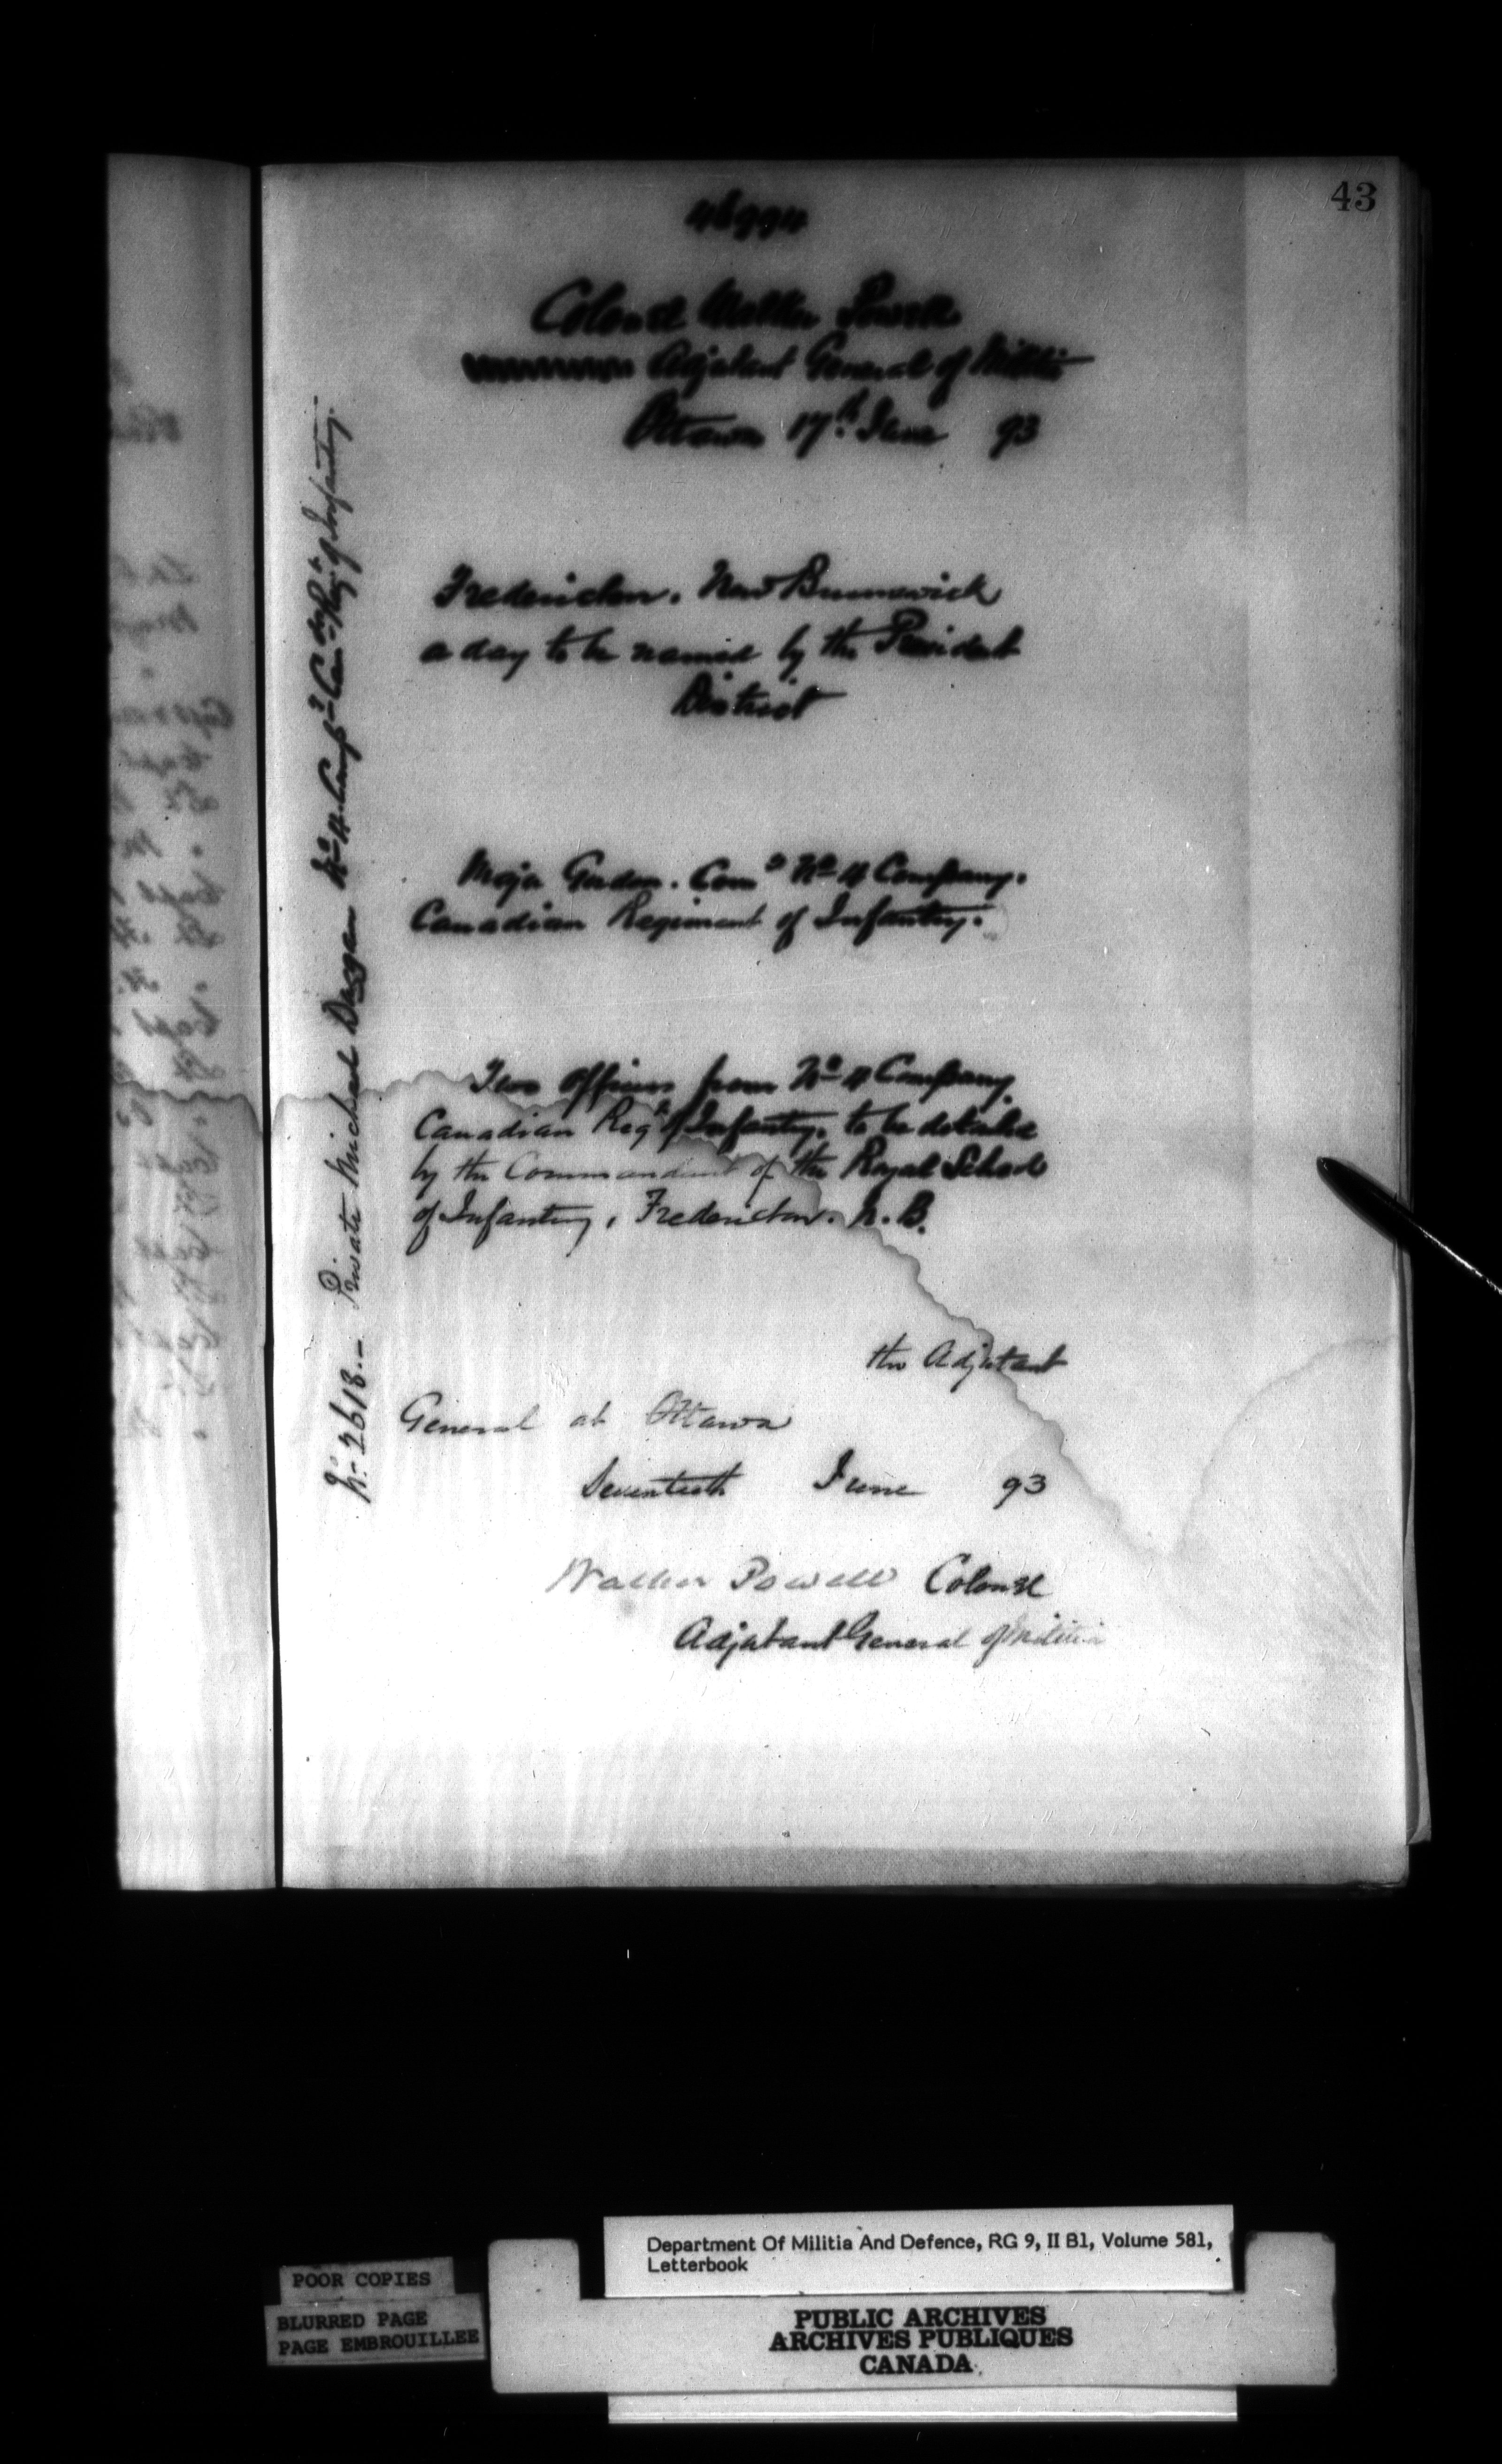 43
46994
Colonel Walker Powell
Adjutant General of Militia
Ottawa 17th June 93
Fredericton. New Brunswick
a day to be named by the President
District
Major Gordon. Comg No 4 Company.
Canadian Regiment of Infantry.
Two officers from No 4 Company
Canadian Regt of Infantry, to be detailed
by the Commandant of the Royal School
of Infantry, Fredericton. N. B.
the Adjutant
General at Ottawa
Seventeeth June 93
Walker Powell Colonel
Adjutant General of Militia
No 2618.- Private Michael Duggan No 4 Company Regt of Infantry.
Department Of Militia And Defence, RG 9, II B1, Volume 581,
Letterbook
POOR COPIES
BLURRED PAGE
PAGE EMBROUILLEE
PUBLIC ARCHIVES
ARCHIVES PUBLIQUES
CANADA